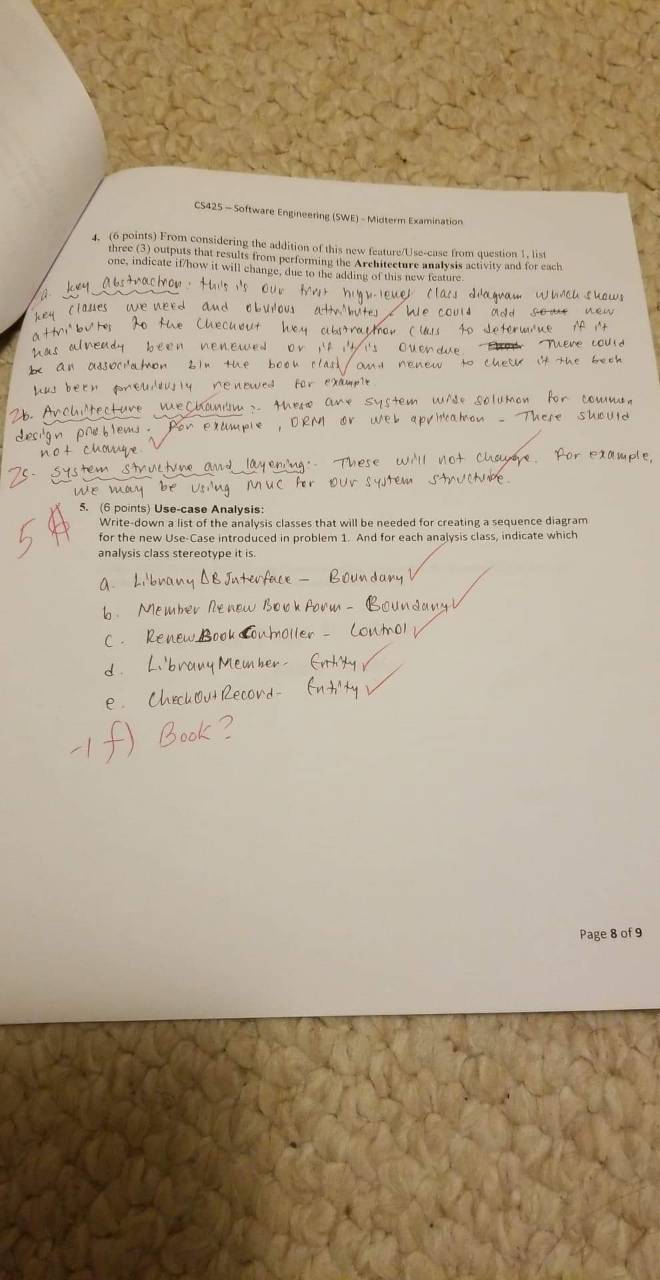 CS425 – Software Engineering (SWE) - Midterm Examination
4. (6 points) From considering the addition of this new feature/Use-case from question 1, list
three (3) outputs that results from performing the Architecture analysis activity and for each
one, indicate if/how it will change, due to the adding of this new feature.
a. key abstraction: this is our first high-level class diagram which shows
key classes we need and obvious attributes. We could add some new
attributes to the checkout key abstraction class to determine if it
has already been renewed or if it is overdue. There could
be an association b/n the book class and renew to check if the book
has been previously renewed for example.
2b. Architecture mechanism: these are system wide solution for common
design problems. For example, ORM or web application - These should
not change.
2c. system structure and layering: These will not change. For example,
we may be using MVC for our system structure.
5. (6 points) Use-case Analysis:
Write-down a list of the analysis classes that will be needed for creating a sequence diagram
for the new Use-Case introduced in problem 1. And for each analysis class, indicate which
analysis class stereotype it is.
5
a. Library DB Interface - Boundary
b. Member Renew Book Form - Boundary
c. Renew Book Controller - Control
d. Library Member - Entity
e. CheckOut Record - Entity
-1 f) Book?
Page 8 of 9